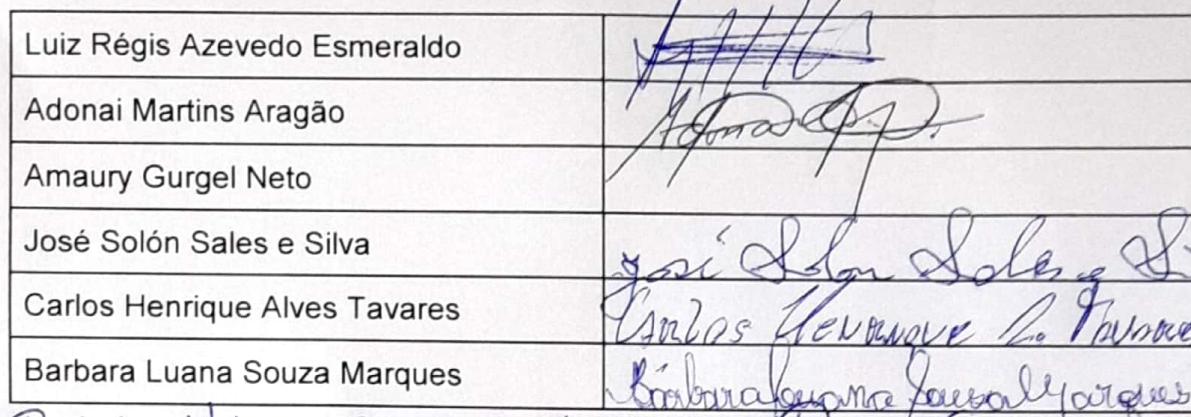 Luiz Régis Azevedo Esmeraldo
Adonai Martins Aragão
Amaury Gurgel Neto
José Solón Sales e Silva José Solon Sales e S
Carlos Henrique Alves Tavares Carlos Henrique A. Tavare
Barbara Luana Souza Marques Bárbara Luana Souza Marques